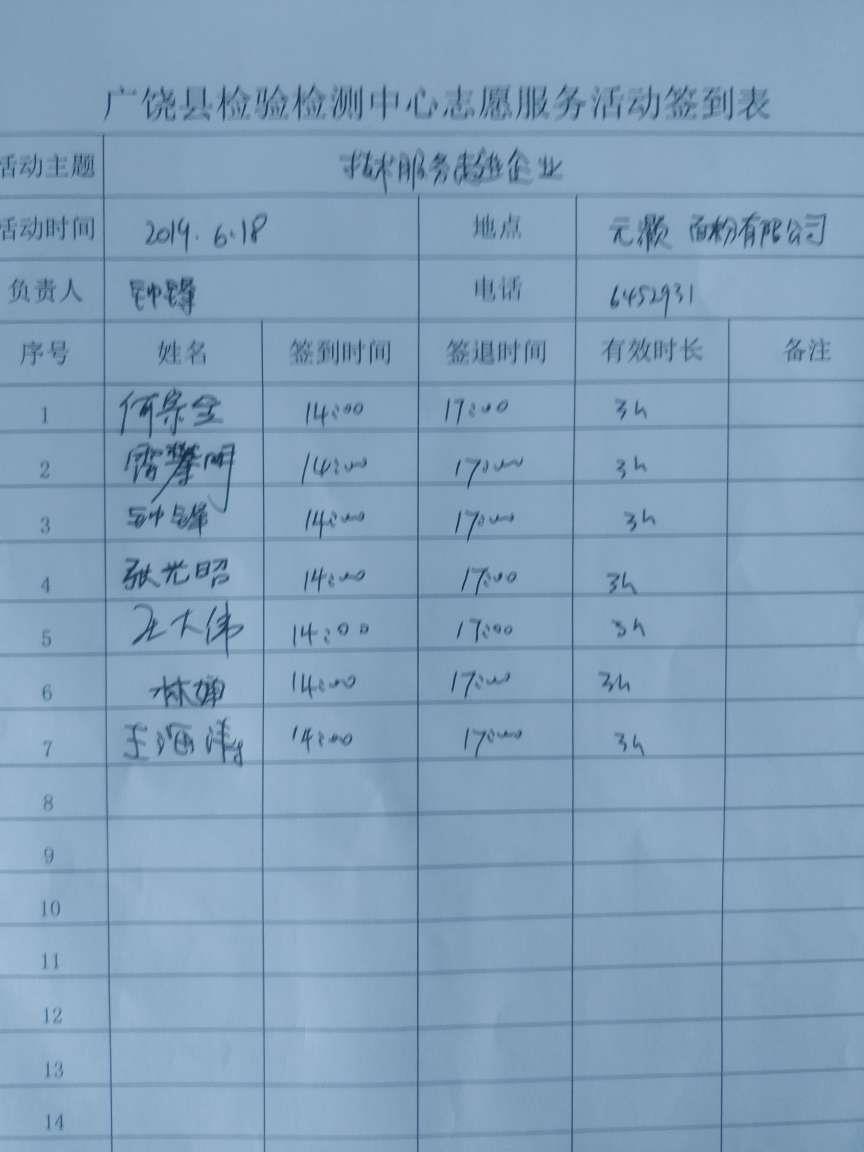 广饶县检验检测中心志愿服务活动签到表
活动主题 技术服务走进企业
活动时间 2019.6.18 地点 元灏面粉有限公司
负责人 钟锋 电话 6452931
序号 姓名 签到时间 签退时间 有效时长 备注
1 何宗全 14:00 17:00 3h
2 攀明 14:00 17:00 3h
3 钟锋 14:00 17:00 3h
4 张光昭 14:00 17:00 3h
5 王大伟 14:00 17:00 3h
6 林 14:00 17:00 3h
7 王海洋 14:00 17:00 3h
8
9
10
11
12
13
14